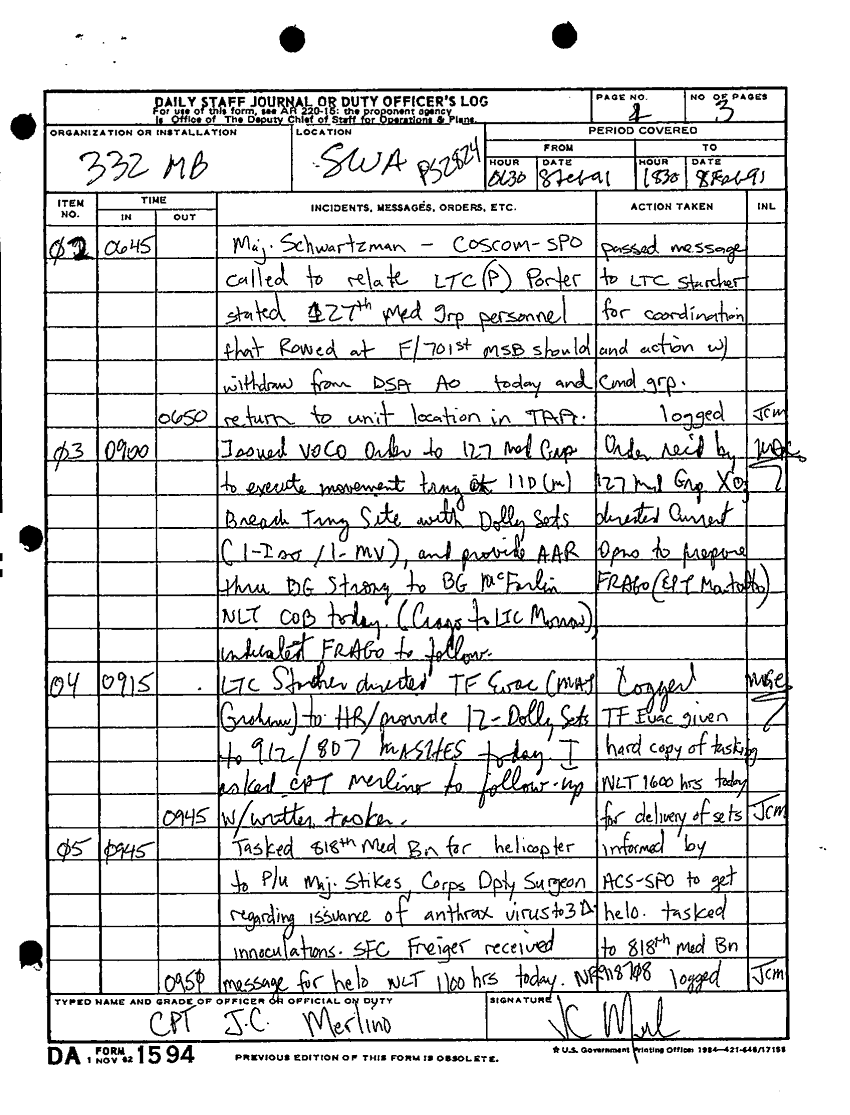 DAILY STAFF JOURNAL OR DUTY OFFICER'S LOG
For use of this form, see AR 220-15: the proponent agency
is Office of The Deputy Chief of Staff for Operations & Plans.
PAGE NO.
NO OF PAGES
3
ORGANIZATION OR INSTALLATION
332 MB
LOCATION
SWA PS2824
PERIOD COVERED
FROM
TO
HOUR
0630
DATE
8Feb91
HOUR
1830
DATE
8Feb91
ITEM NO.
TIME
IN
OUT
INCIDENTS, MESSAGES, ORDERS, ETC.
ACTION TAKEN
INL
0645 Maj. Schwartzman - COSCOM-SPO passed message
called to relate LTC(P) Porter to LTC Starcher
stated 127th Med grp personnel for coordination
that Rowed at F/701st MSB should and action w/
withdraw from DSA AO today and Cmd grp.
0650 return to unit location in TAA. logged JCM
03 0900 Issued VOCO Order to 127 Med Grp Order rec'd by
to execute movement trng at 11D (m) 127 Med Grp XO,
Breach Trng Site with Dolly Sets directed Current
(1-Iso/1-MV), and provide AAR Opns to prepare
thru BG Strong to BG McFarlin FRAGO (CPT
NLT COB today. to LTC
indicated FRAGO to follow.
04 0915 LTC Starcher directed TF Evac (MAJ Logged
Graham) to HR/provide 12-Dolly Sets TF Evac given
to 912/807 MASHES today. I hard copy of tasking
asked CPT Merlino to follow-up NLT 1600 hrs today
0945 w/written tasker. for delivery of sets JCM
05 0945 Tasked 818th Med Bn for helicopter informed by
to P/U Maj. Stikes, Corps Dpty Surgeon ACS-SPO to get
regarding issuance of anthrax virus to 3D helo. tasked
innoculations. SFC Freiger received to 818th Med Bn
0950 message for helo NLT 1100 hrs today. logged JCM
TYPED NAME AND GRADE OF OFFICER OR OFFICIAL ON DUTY
CPT J.C. Merlino
SIGNATURE
JC Merl
DA FORM 1594
1 NOV 62
PREVIOUS EDITION OF THIS FORM IS OBSOLETE.
☆ U.S. Government Printing Office: 1984-421-646/17155